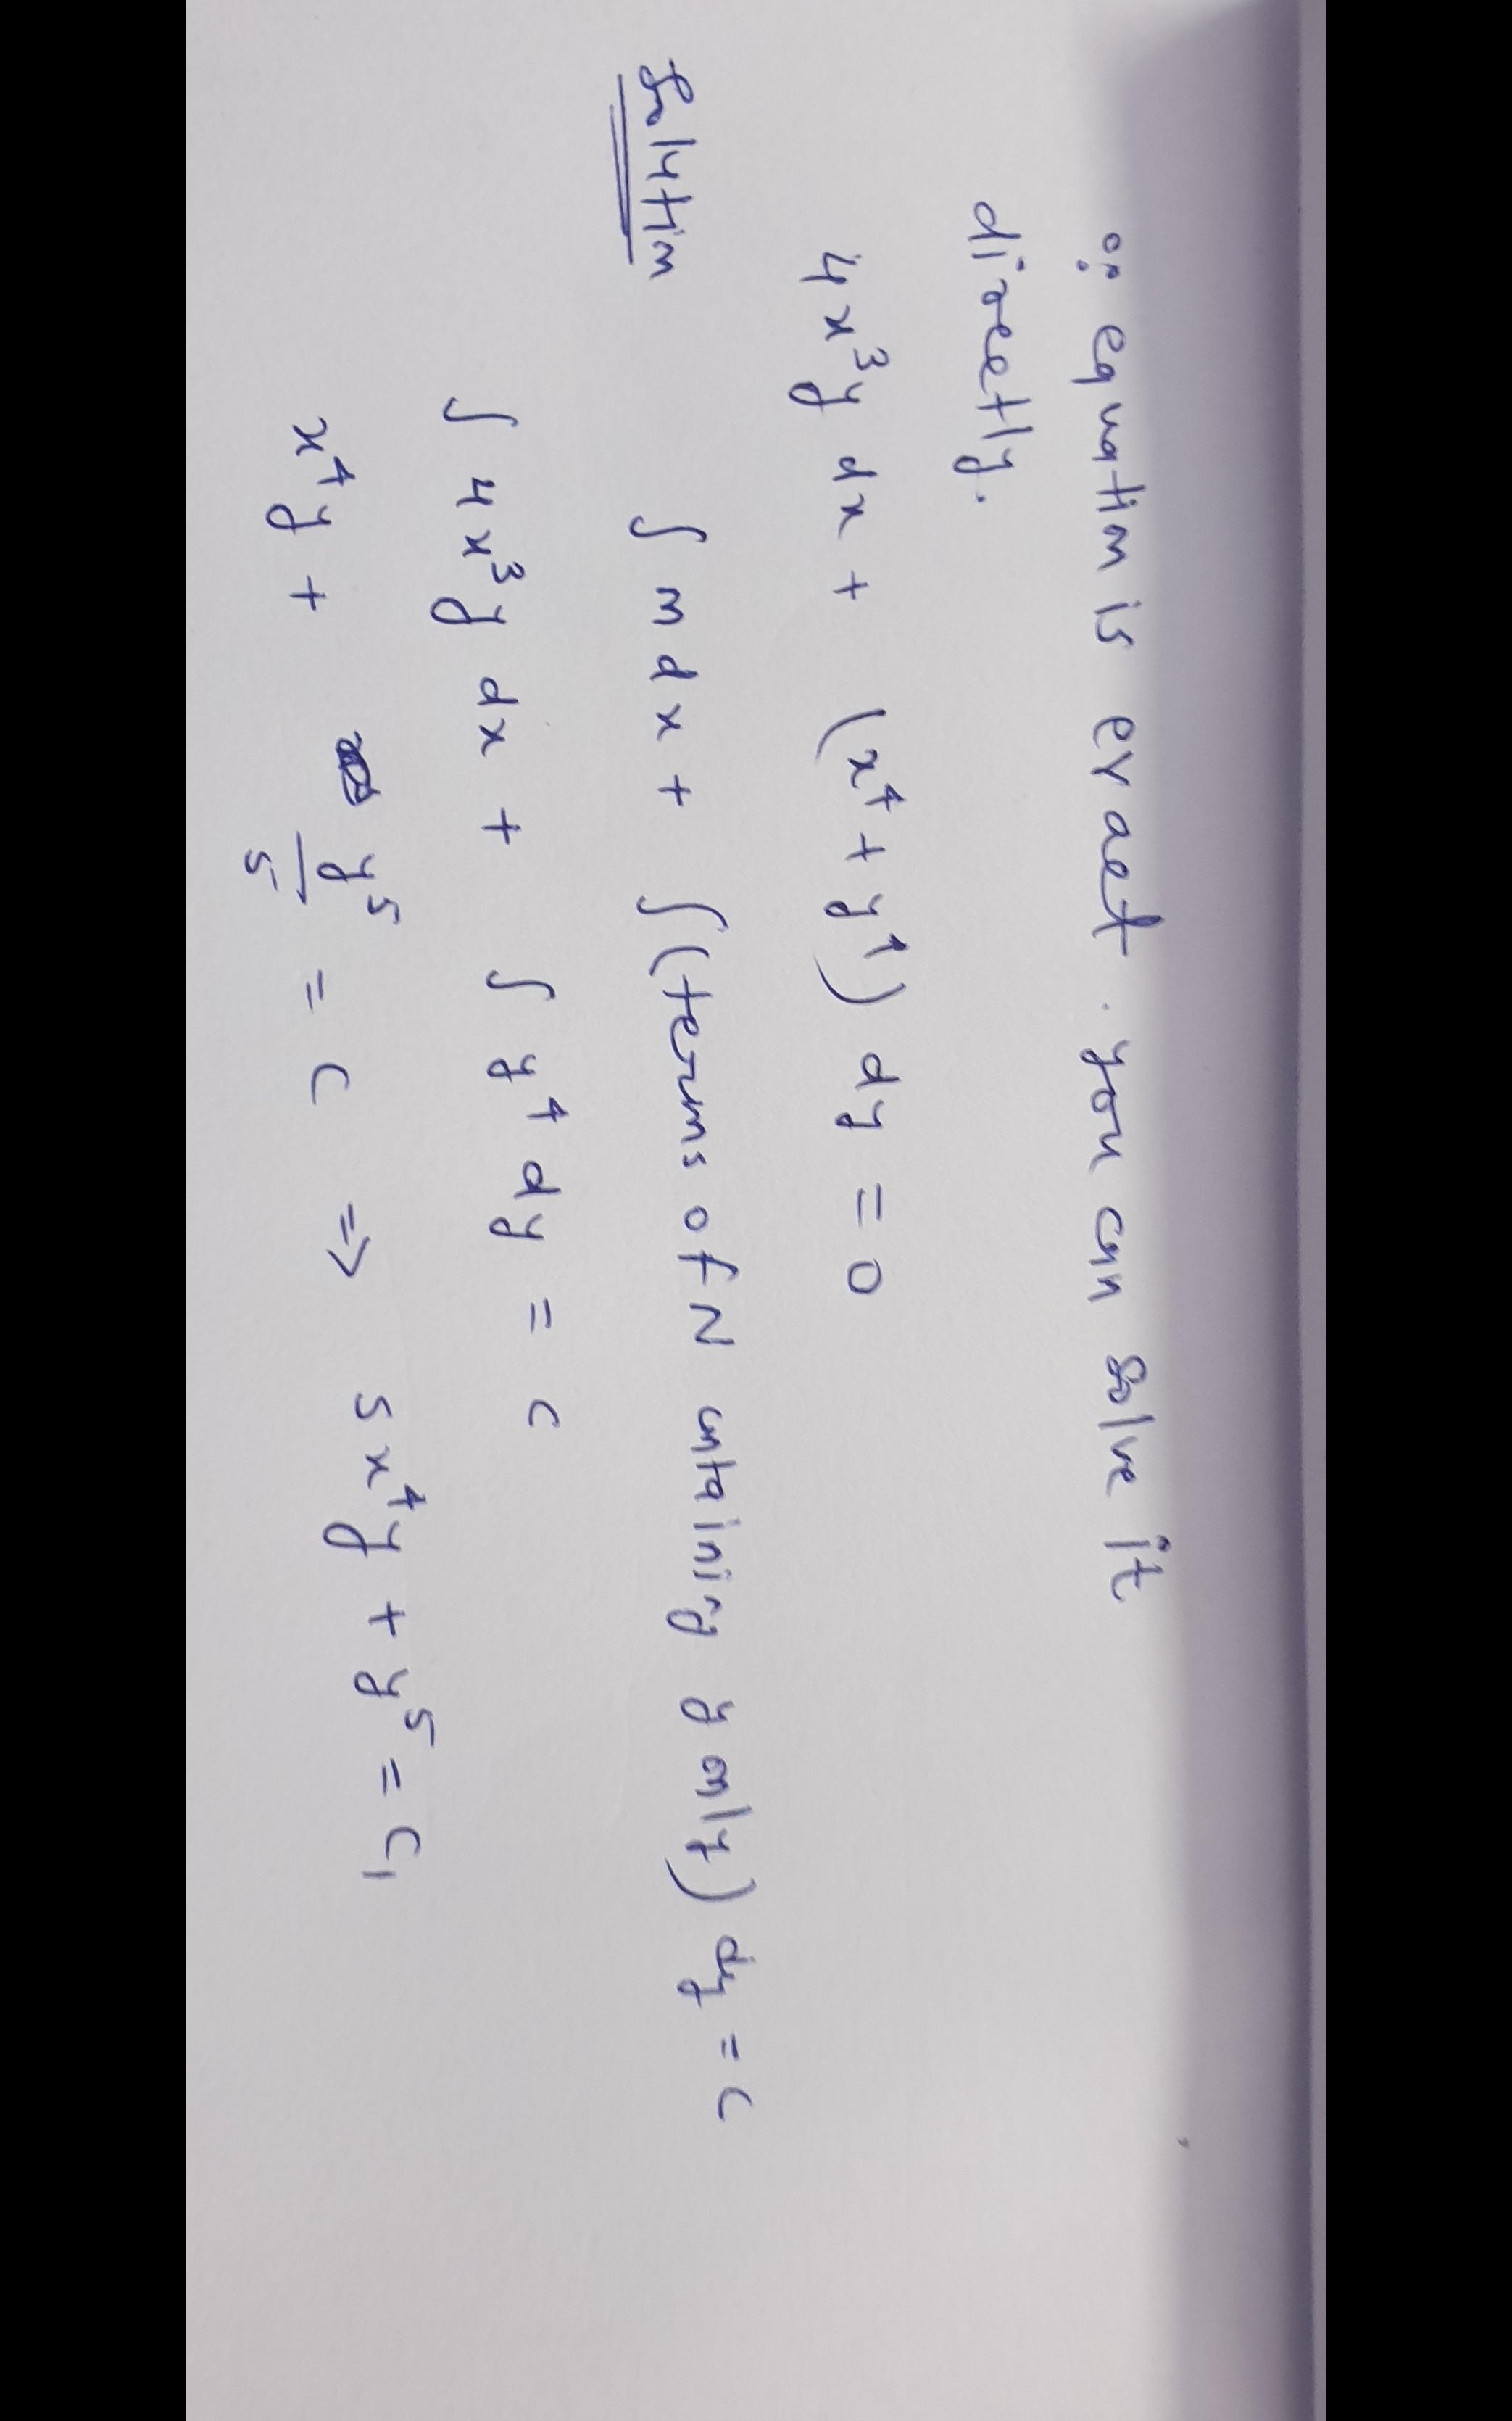 ∵ equation is exact. you can solve it
directly.
4x³y dx + (x⁴ + y⁴) dy = 0
Solution ∫ m dx + ∫ (terms of N containing y only) dy = c
∫ 4x³y dx + ∫ y⁴ dy = c
x⁴y + y⁵/5 = c ⇒ 5x⁴y + y⁵ = c₁